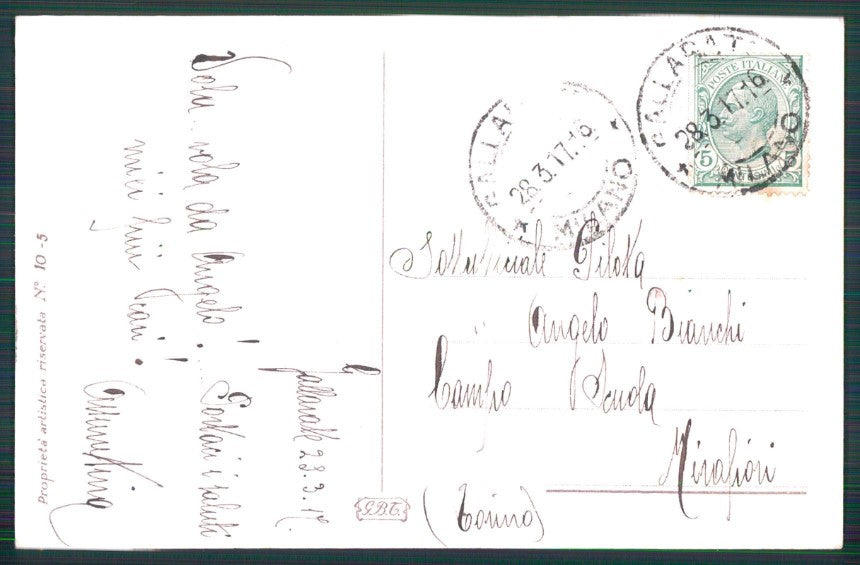 Vola, vola da Angelo! Portaci i saluti
miei
Gallarate 28.3.17.
Proprietà artistica riservata N° 10-5
G.B.T.
GALLARATE
28.3.17.16
MILANO
GALLARATE
28.3.17.16
MILANO
POSTE ITALIANE
5
Sottufficiale Pilota
Angelo Bianchi
Campo Scuola
Mirafiori
(Torino)